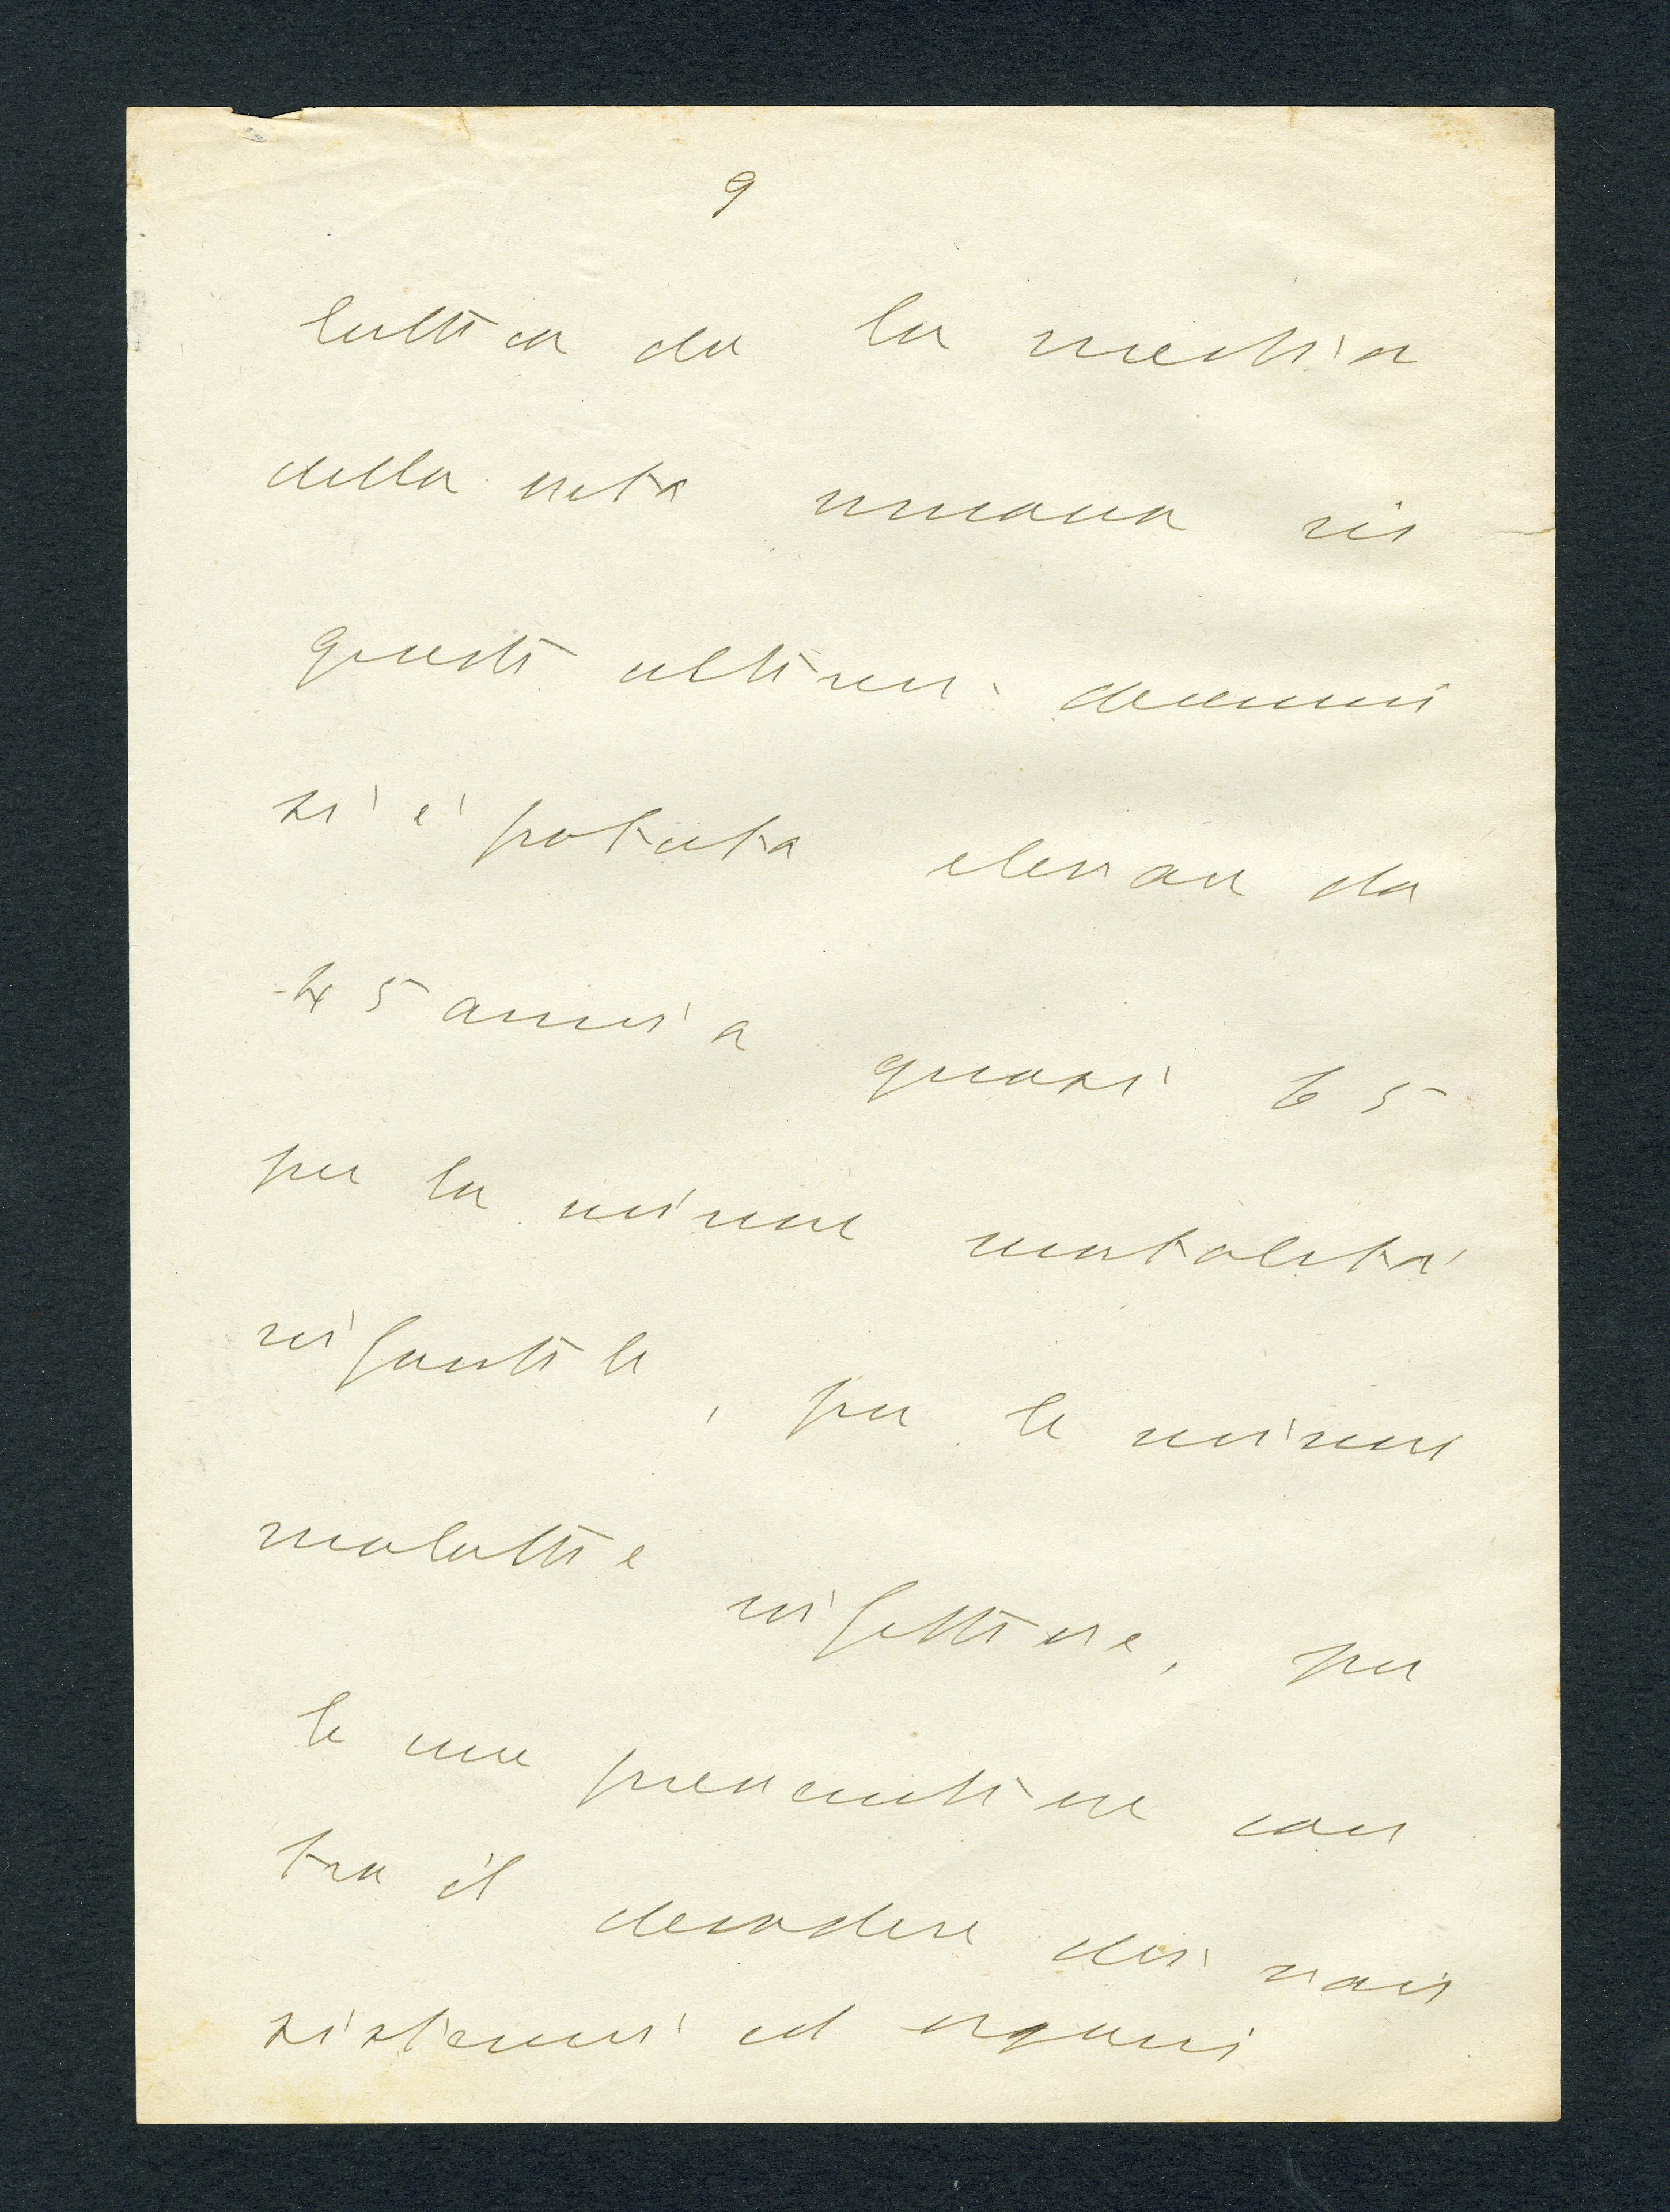 9
lattia da la media
della vita umana in
questi ultimi decenni
si è potuta elevare da
45 anni a quasi 65
per la minore mortalità
infantile, per le minori
malattie infettive, per
le cure preventive con
tro il decadere dei vari
sistemi ed organi